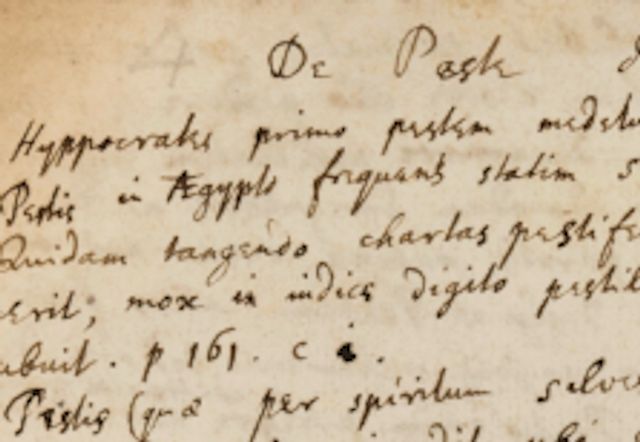 De Peste
Hyppocrates primo pestem
Pestis in Ægypto frequens statim
Quidam tangendo chartas pestife
erit, mox in indice digito
abuit. p 161. c
Pestis (quæ per spiritum